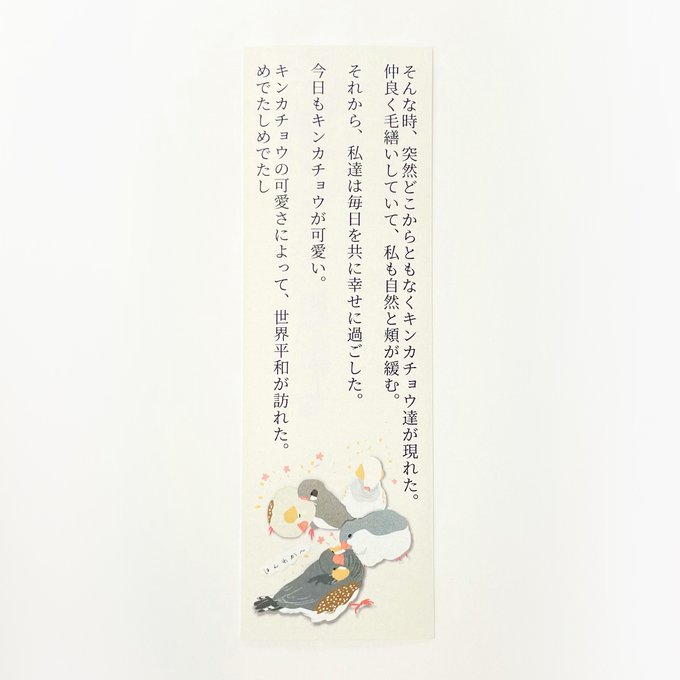 そんな時、突然どこからともなくキンカチョウ達が現れた。
仲良く毛繕いしていて、私も自然と頬が緩む。
それから、私達は毎日を共に幸せに過ごした。
今日もキンカチョウが可愛い。
キンカチョウの可愛さによって、世界平和が訪れた。
めでたしめでたし